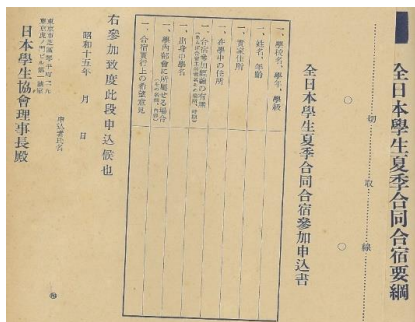 全日本學生夏季合同合宿要綱
切取線
全日本學生夏季合同合宿參加申込書
一、學校名、學年、學級
一、姓名、年齡
一、實家住所
一、在學中の住所
一、合宿參加經驗の有無
一、出身中學名
一、學內部會に所屬せる場合
一、合宿實行上の希望意見
右參加致度此段申込候也
昭和十五年 月 日
申込者氏名
日本學生協會理事長殿